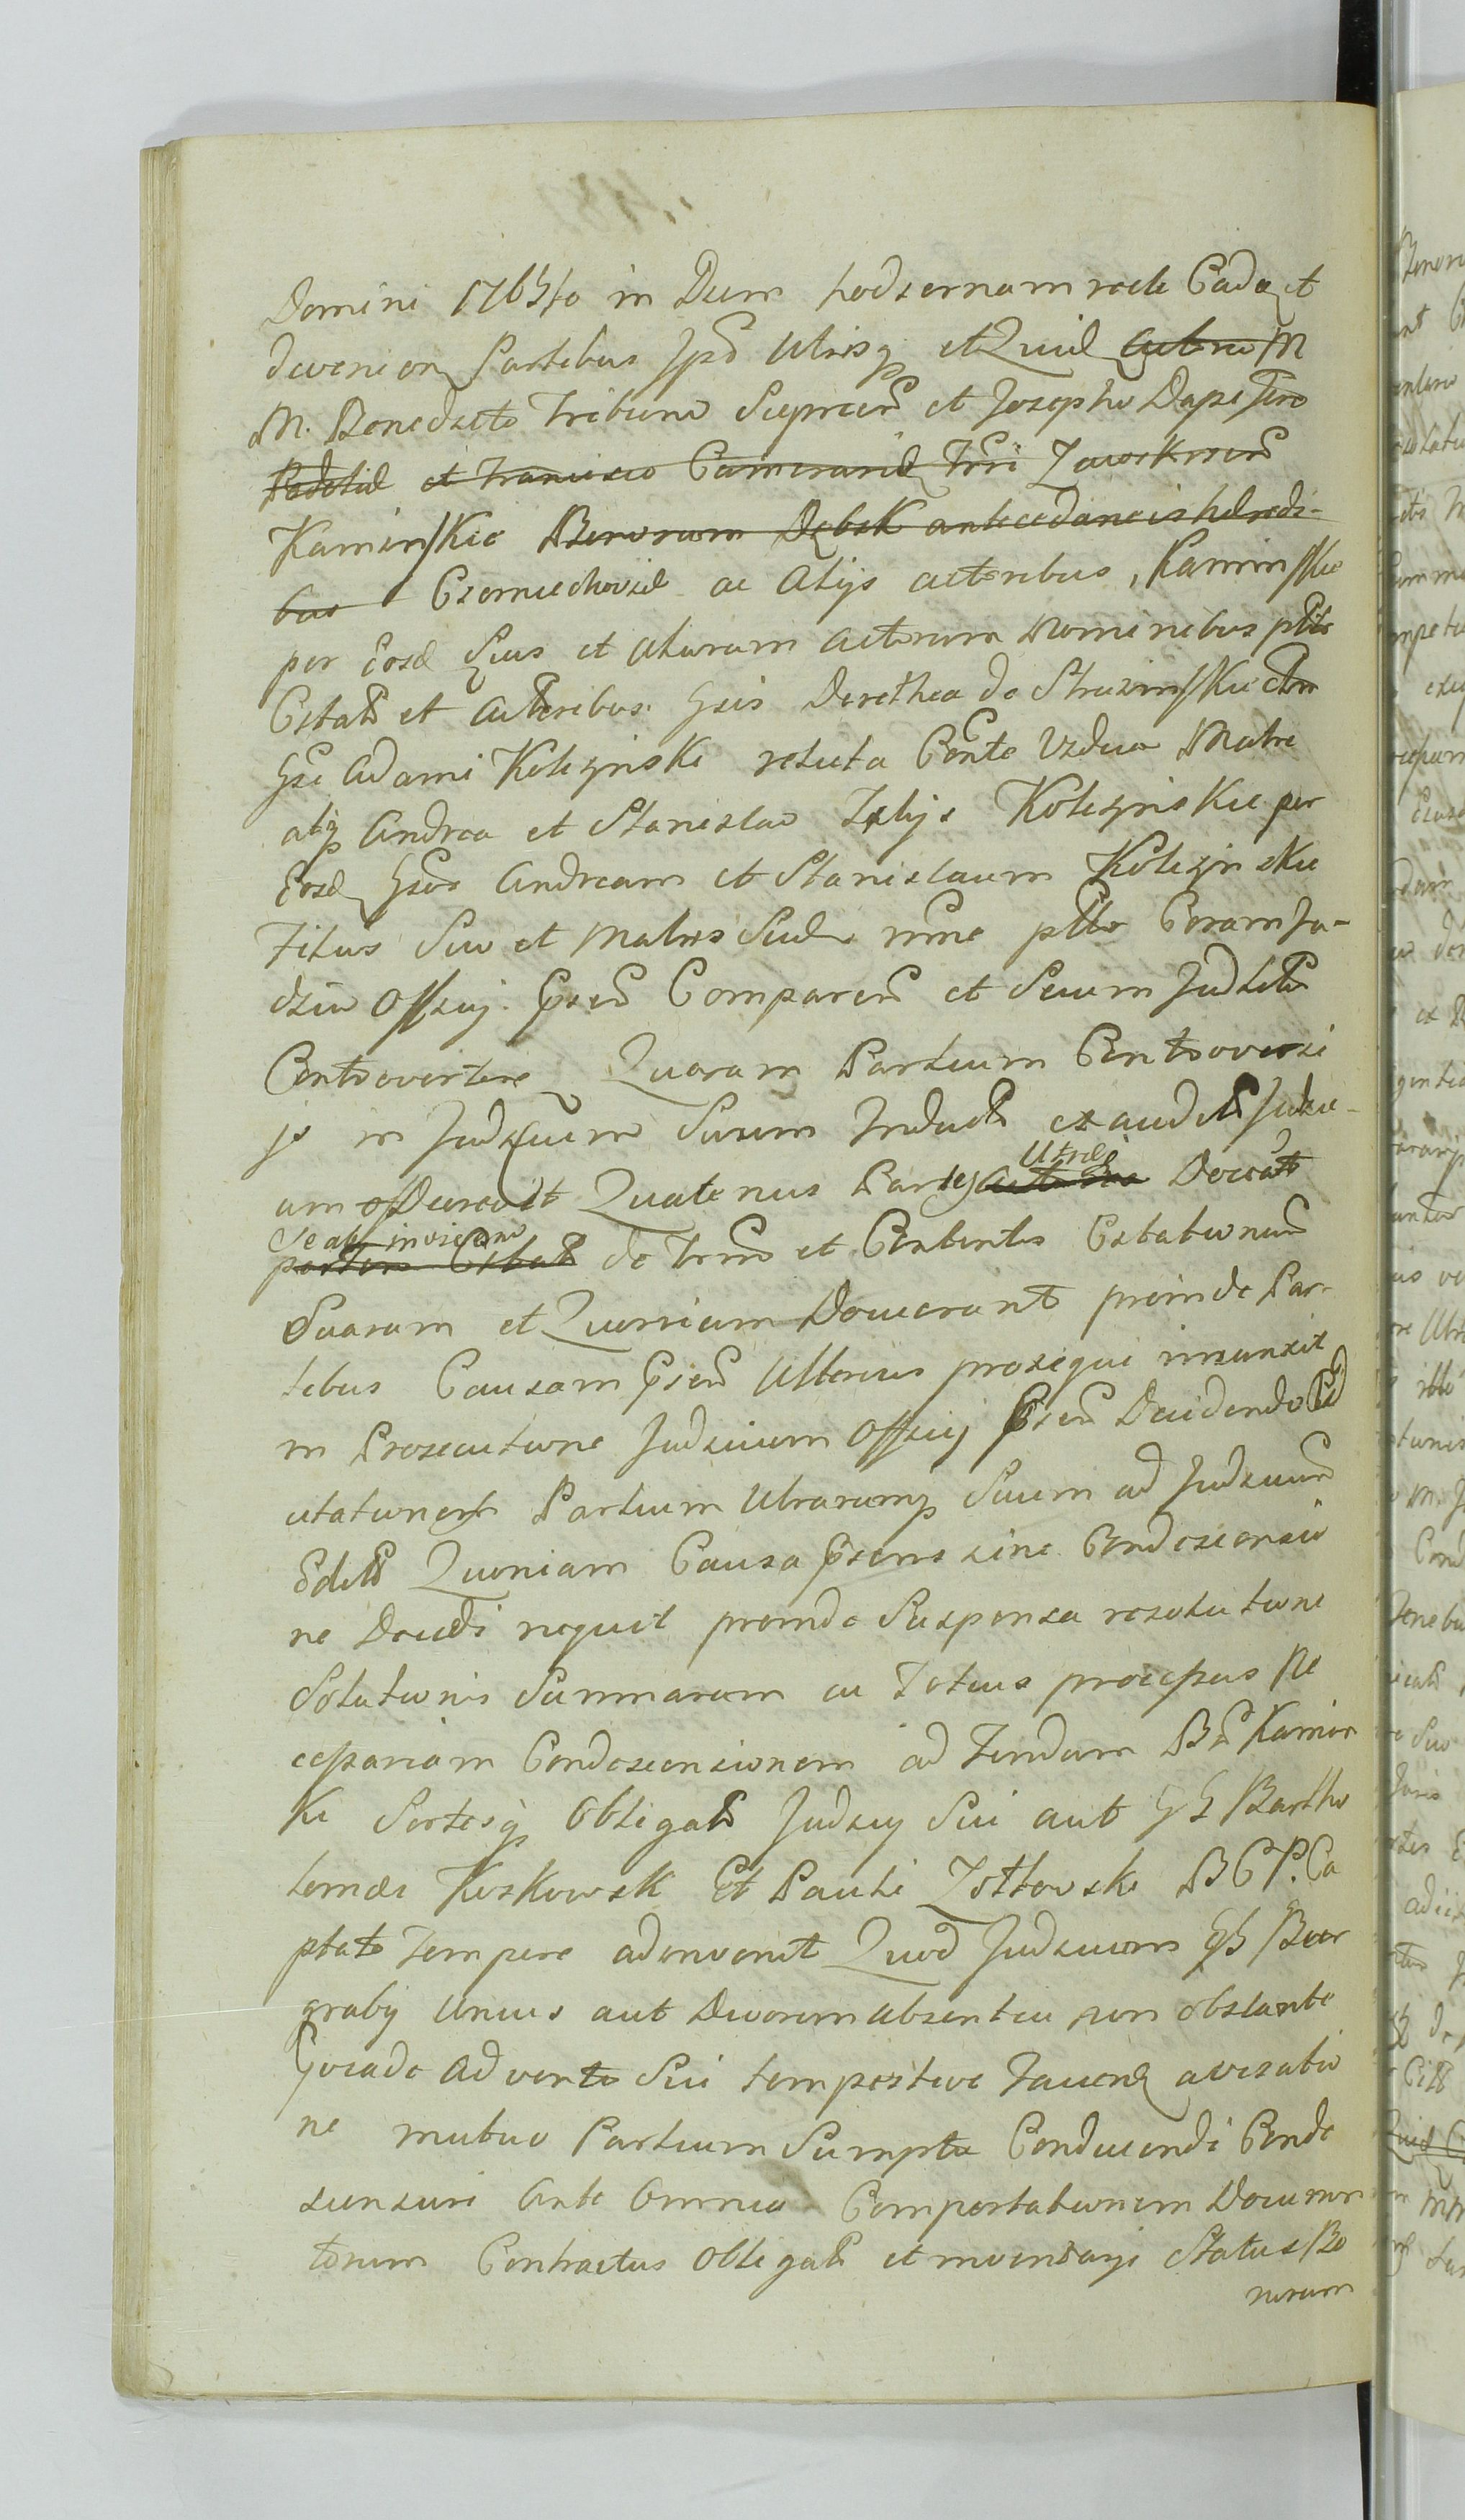 Domini 1765to in Diem hodiernam recte Cadeñ et
devenien Partibus Ipsis Utrisq, et Quid Actorea M
M. Benedicto Tribuno Siepricen et Josepho Dapifero
Podoliæ et Francisco Camerario Trri Zawskrzen
Kaminskie Bonorum Dębsk antecedaneis hæredi-
bus Czerniechoviæ ac Alijs actoribus, Kaminskie
per Eosd Suo et aliorum Actorum Nominibus pltr
Citatis et Actoribus. Gsis Dorothea de Struzinskie olim
Gsi Adami Koliczinski relicta Conte Vidua Matre
atq Andrea et Stanislao Filijs Koliczinskie per
Eosd Gsos Andream et Stanislaum Koliczinskie
Filios Suo et Matris Suæ nme pltr Coram Ju-
dicio Officij Psen Comparen et Secum Judiciter
Controverten Quarum Partium Controversi
js in Judicium Suum Inductis exauditis Judici-
um Decrevit Quatenus Partes Utræq Actorea Doceat
Se ab invicem partem Citatam de Trno et Contentis Citationum
Suarum et Quoniam Docuerunt proinde Par-
tibus Causam Psen Ulterius prosequi iniunxit
in Prosecutione Judicium Officij Psen Decidendo
utationem Partium Utrarumq Suum ad Judicium
Editis Quoniam Causa Psens sine Condescensio
ne Decidi nequit proinde Suspensa resolutione
Solutionis Summarum ac Totius processus Ne
cessariam Condescensionem ad Fundum Bon Kamin
ki Sortesq Obligatas Judicij Sui aut GG Bartho
lomæi Koskowski Et Pauli Zołtowski B G P. Ca
ptato Tempore adinvenit Quod Judicium GG Bur
grabij Unius aut Duorum absentia non obstante
Gviado Advento Sui tempestive Faciend avisatio
ne mutuo Partium Sumptu Conducendi Conde
scensuri Ante Omnia Comportationem Documen
torum Contractus Obligatis et inventarij Status Bo
norum